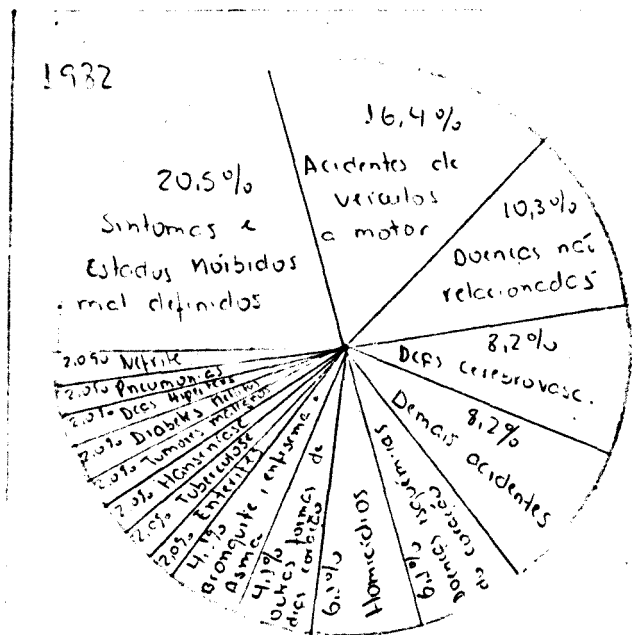 1982
16,4%
Acidentes de
veículos
a motor
10,3%
Doenças não
relacionadas
8,2%
Dças cerebrovasc.
8,2%
Demais acidentes
6,1%
Doenças isquêmicas
do coração
6,1%
Homicídios
4,1%
Outras formas de
dças
4,1%
Bronquite, enfisema.
Asma
2,0% Enterites
2,0% Tuberculose
2,0% Hanseníase
2,0% Tumores malignos
2,0% Diabetes Mélitos
2,0% Dças Hipertens
2,0% Pneumonias
2,0% Nefrite
20,5%
Sintomas e
Estados Mórbidos
mal definidos